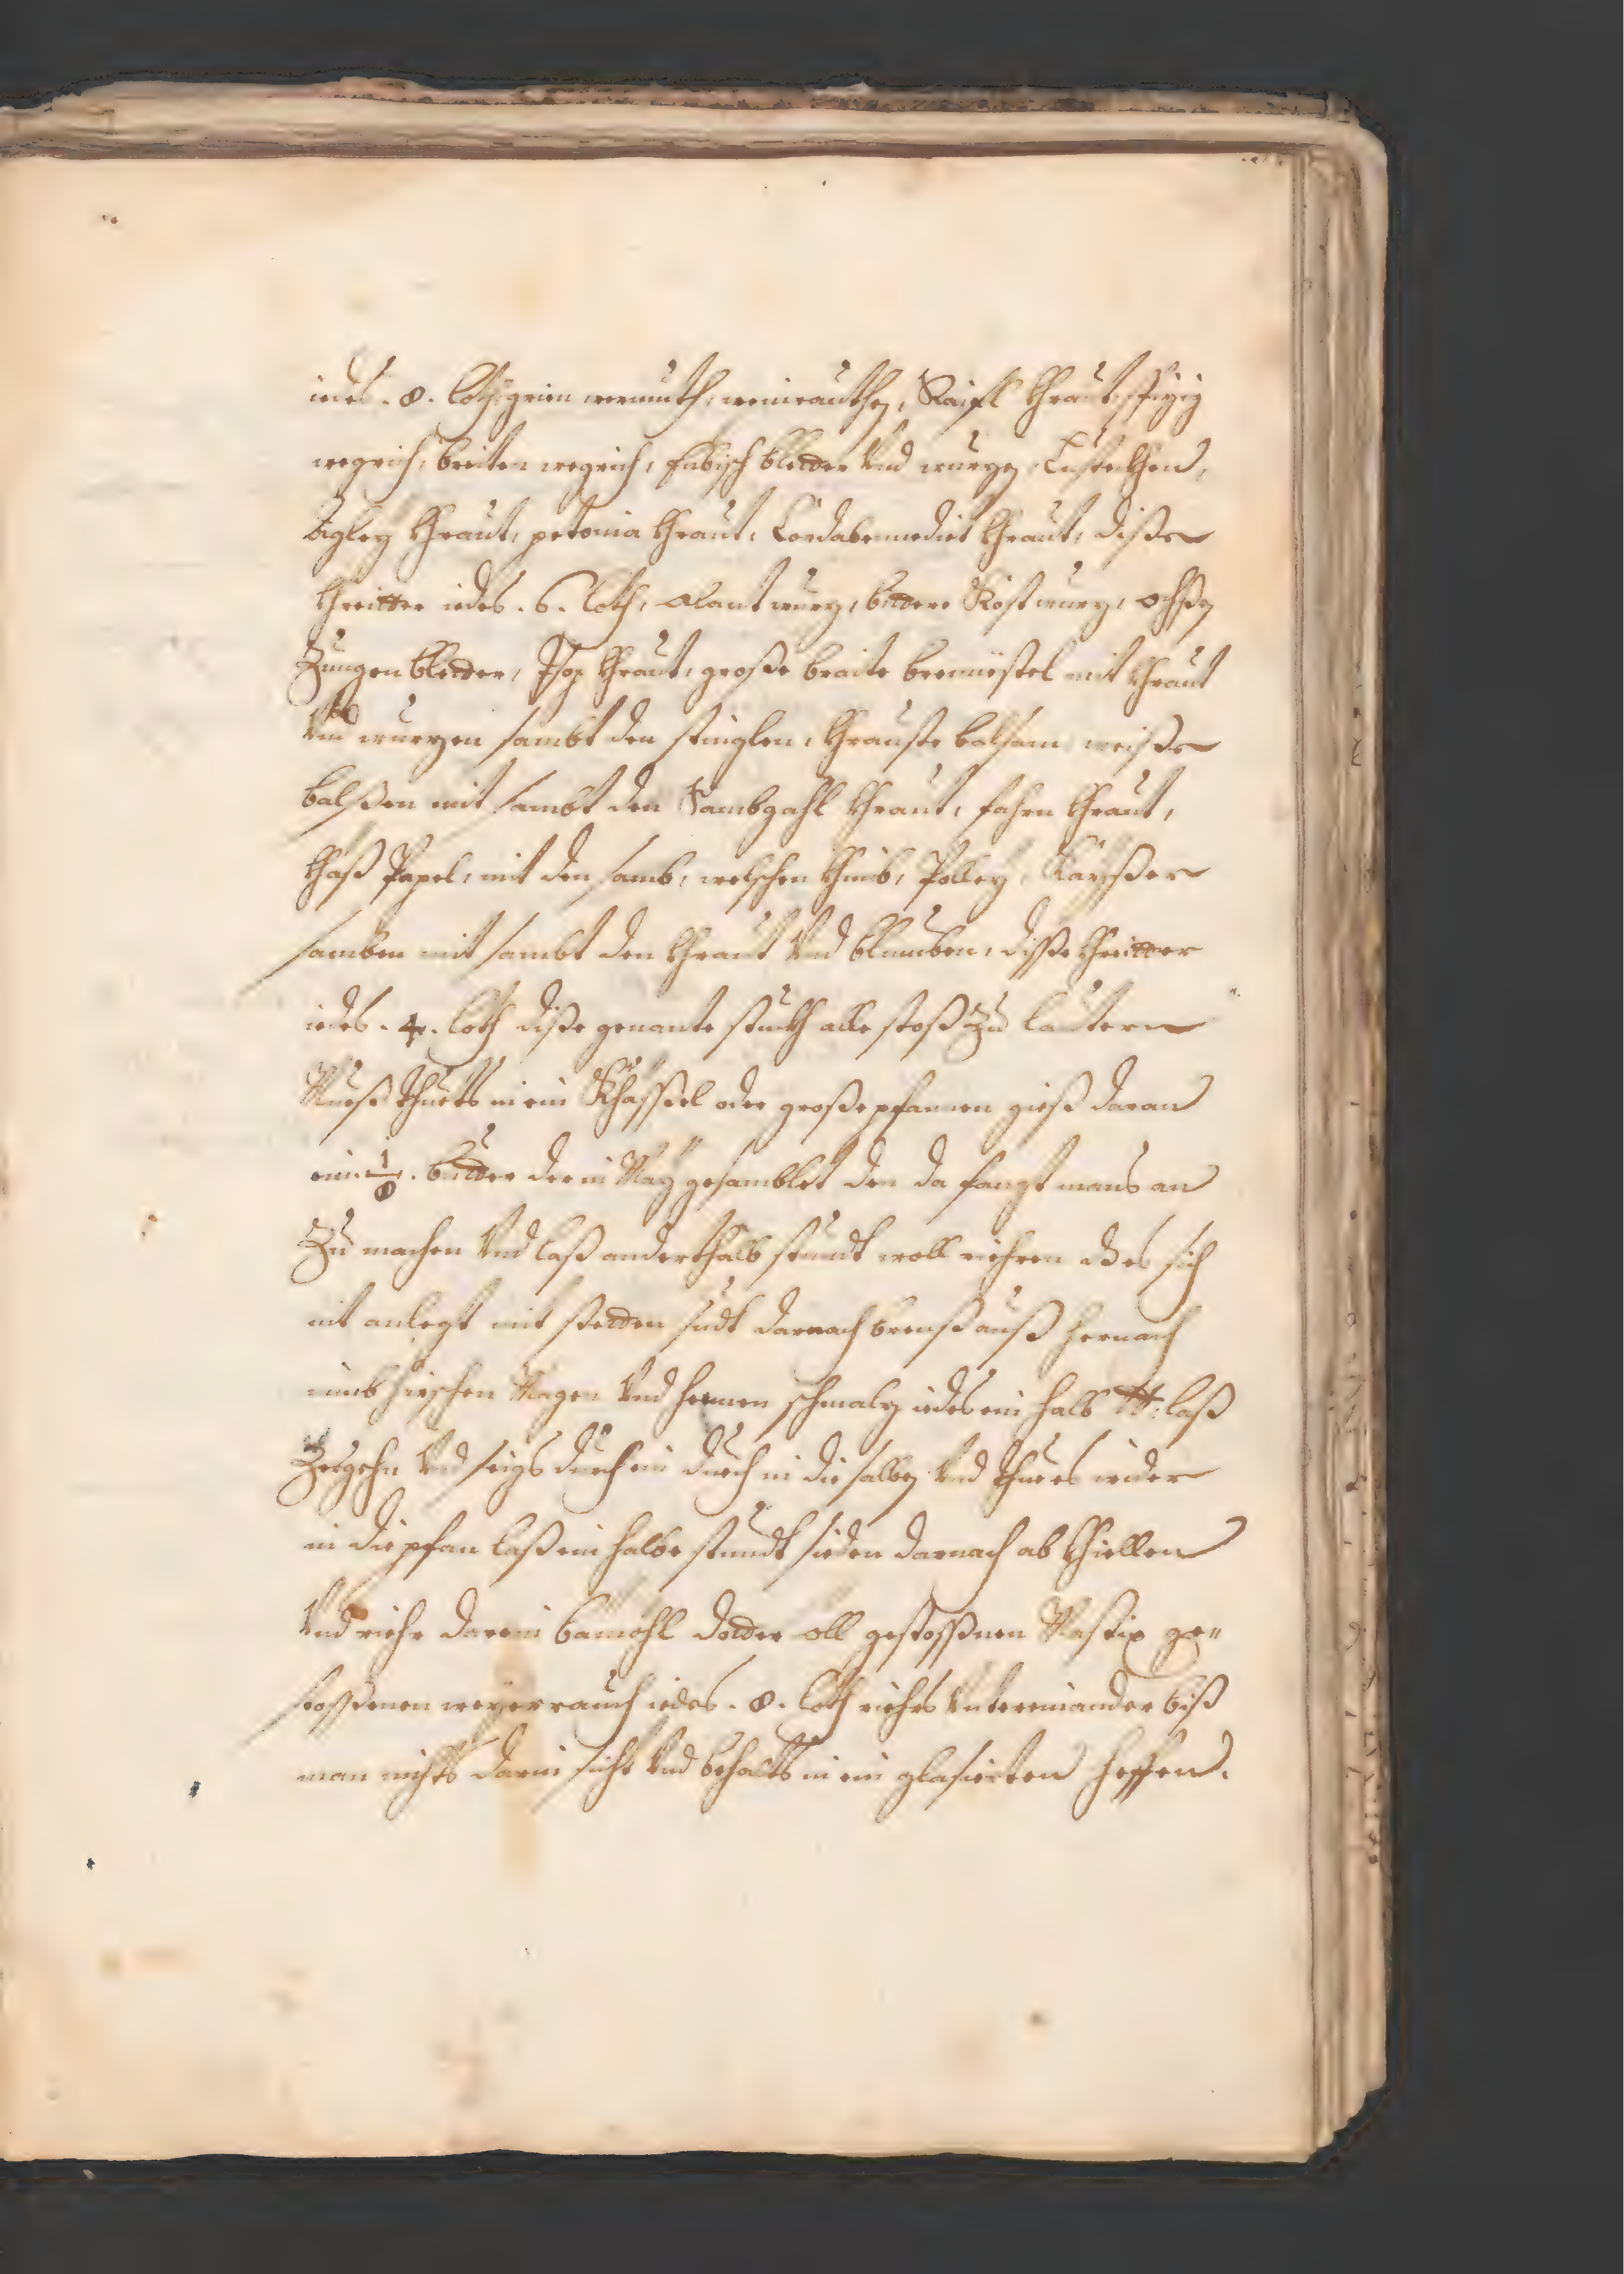 iedes. 8. loth, grien wermuth, weinrauthen, Raifl Khraut, spizig
wegrich, breiten wegrich, Eubisch bletter Vnd wurzen, Lustickhen,
Agley Khraut, petonia Khraut, Cordabenedict Khraut, dißer
Khreitter iedes. 6. loth, Alant wurz, bittere Kost wurz, ochßen
Zungen bletter, Isop Khraut, große braite brennestel mit Khraut
Vnd wurzen sambt den stinglen, Khrauste balsam weißer
balßen mit sambt den Khraut, fahrn Khraut,
Khaß Papel, mit den samb, welschen Khimb, Polley,
samben mit sambt den Khraut Vnd bluemben, diße Khreitter
iedes. 4. loth diße genante stuckh alle stoß Zu lautern
Mueß thuets in ein Khässßel oder große pfannen gieß daran
ein 1/8. butter der in Maÿ gesamblet den da fangt mans an
Zu machen Vnd laß anderthalb stundt woll riehren dß es sich
nit anlegt mit stetten sudt darnach brenß auß hernach
nimb hirschen Magen Vnd hennen schmalz iedes ein halb ℔: laß
Zergehn Vnd seigs durch ein duech in die salben Vnd thue es wider
in die pfan laß ein halbe stundt sieden darnach ab Khiellen
Vnd riehr darein bamohl dotter oll gestossßnen Mastix ge„
stossßenen weyerrauch iedes. 8. loth riehrs Vntereinander biß
man nichts darin sicht Vnd behalts in ein glasierten heffen.